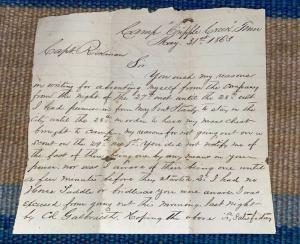 Camp "Cripple Creek" Tenn
May 31st 1863
Capt.
Sir
You wish my reasons
in writing for absenting myself from the company
from the night of the 27th inst until the 28th inst
I had permission from Maj to stay in the
City until the 28th in order to have my
brought to camp. my reasons for not going out on a
scout on the 29th You did not notify me of
the fact of there being one by any means on your
and was not aware of there being one until
a few minutes before they started & I had no
Horse Saddle or bridle as you were aware I was
excused from going out this morning last night
by Col Galbraith. Hoping the above is Satisfactory